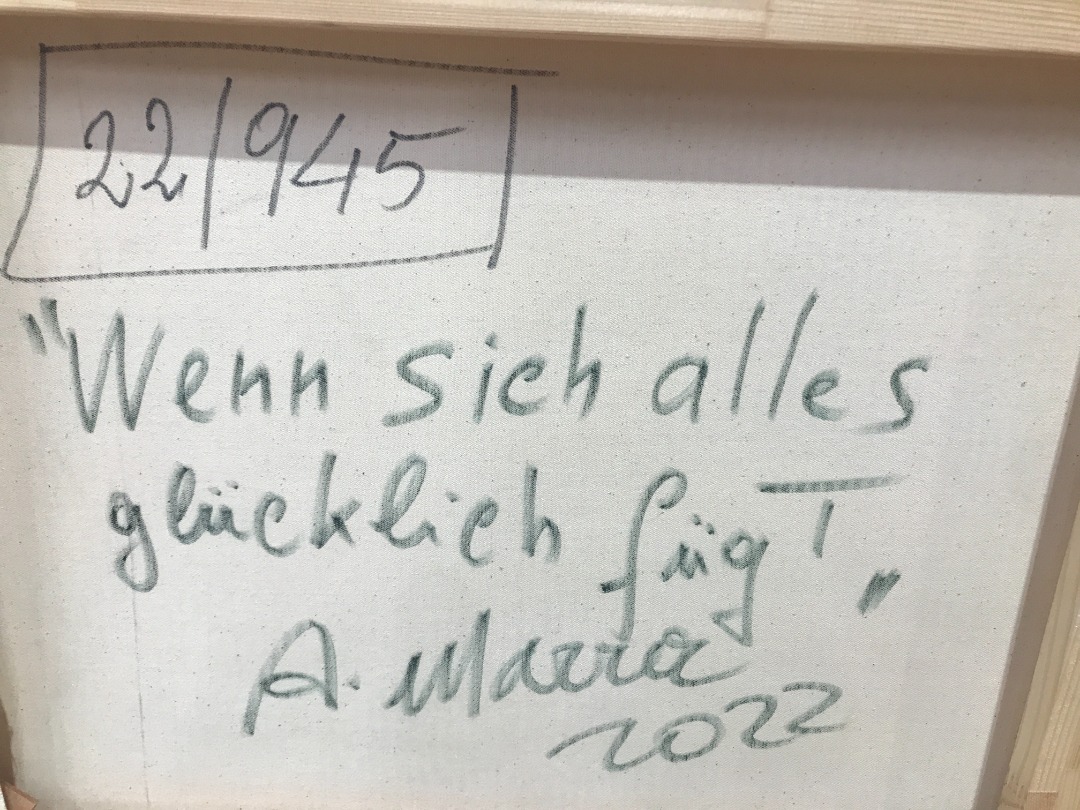 22/945
"Wenn sich alles
glücklich fügT"
A. Marra
2022